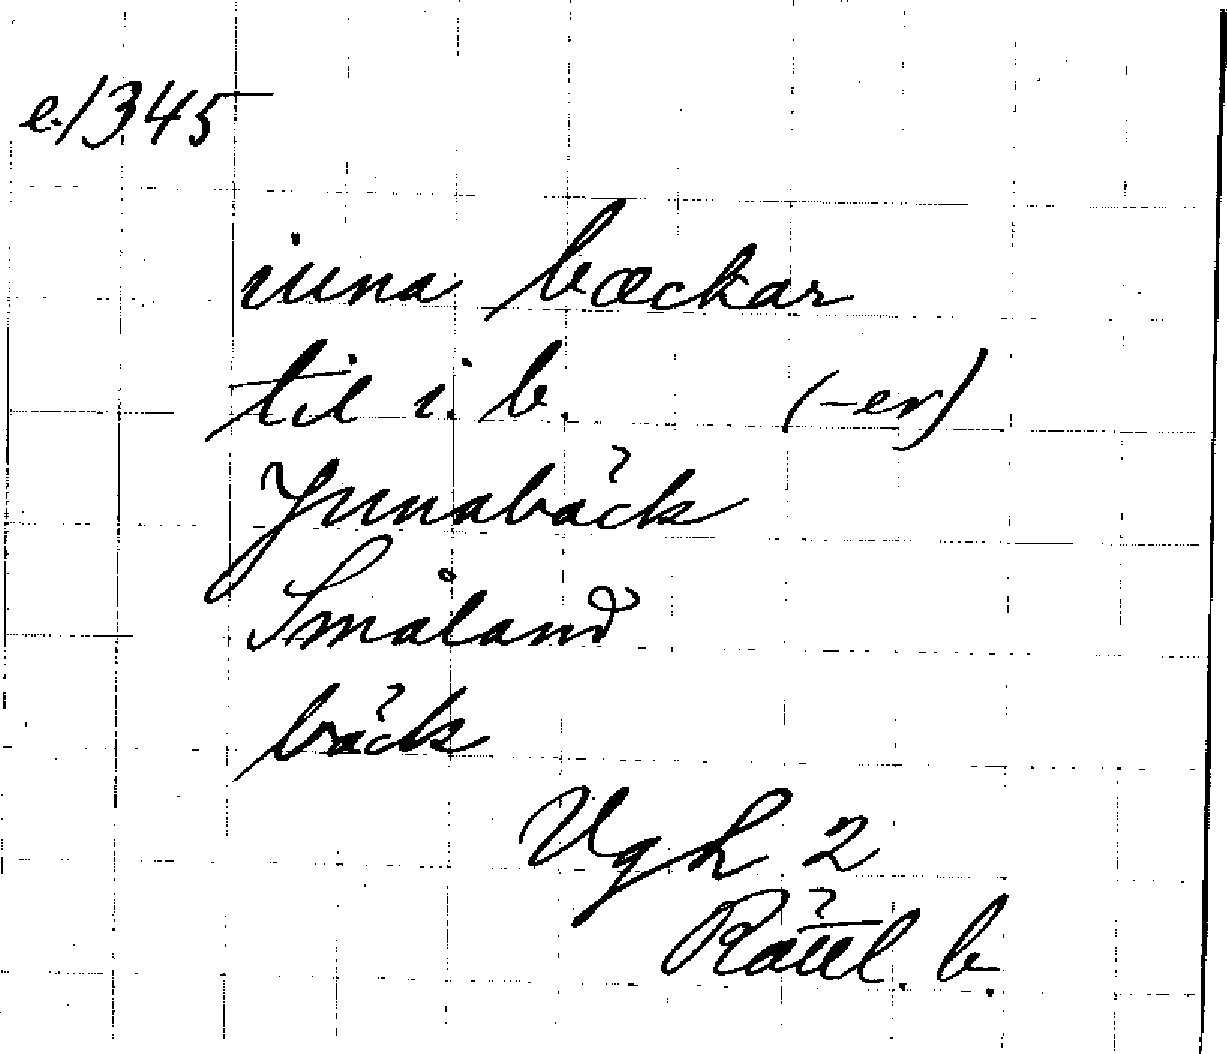 e. 1345
iuna bæckar
til i. b. (-er)
Junabäck
Småland
bäck
VgL 2
Rättl. b.